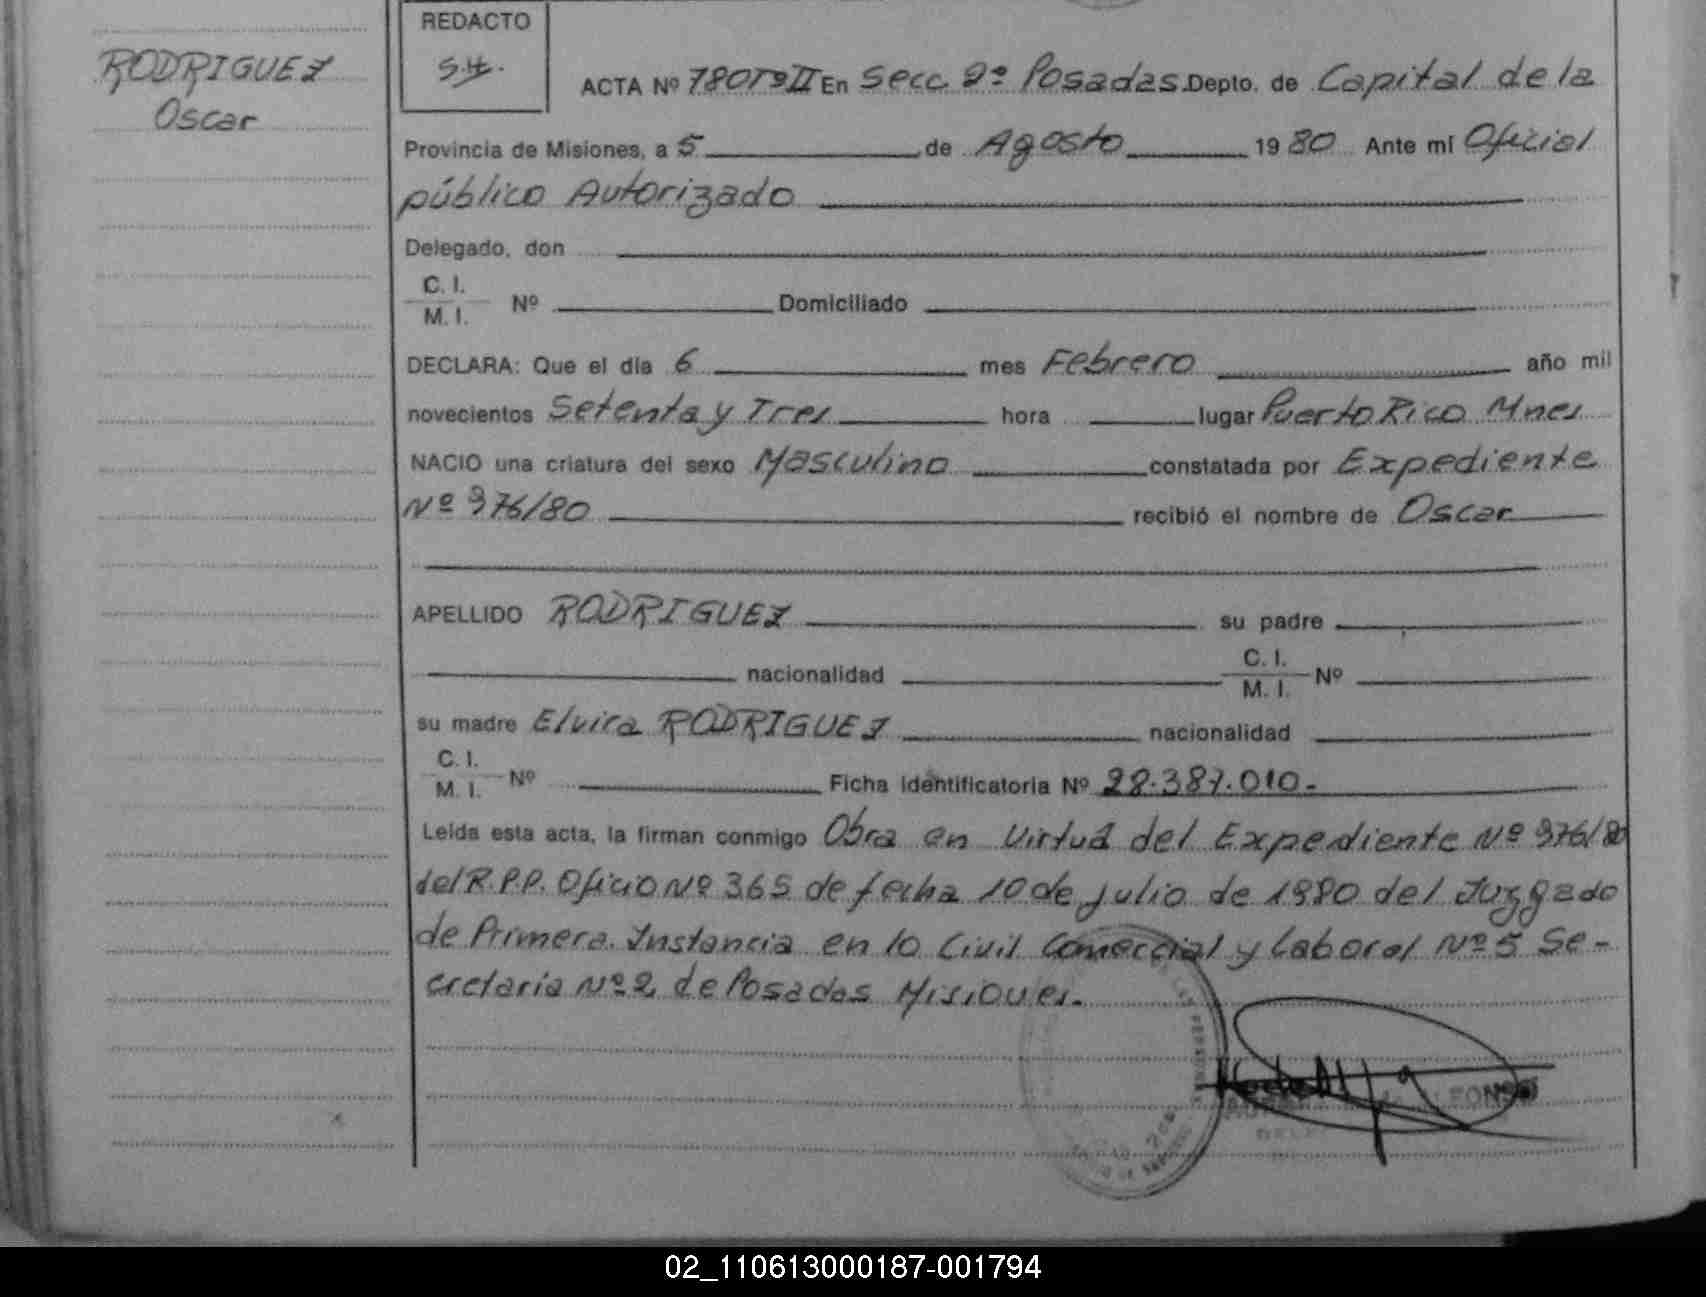 RODRIGUEZ
Oscar
REDACTO
S.H.
ACTA Nº 780 Tº II En Secc. 2º Posadas. Depto. de Capital de la
Provincia de Misiones, a 5 de Agosto 1980 Ante mi Oficial
público Autorizado
Delegado, don
C. I.
M. I. Nº Domiciliado
DECLARA: Que el día 6 mes Febrero año mil
novecientos Setenta y Tres hora lugar Puerto Rico Mnes
NACIO una criatura del sexo Masculino constatada por Expediente
Nº 976/80 recibió el nombre de Oscar
APELLIDO RODRIGUEZ su padre
nacionalidad C. I.
M. I. Nº
su madre Elvira RODRIGUEZ nacionalidad
C. I.
M. I. Nº Ficha identificatoria Nº 28.387.010.-
Leída esta acta, la firman conmigo Obra en Virtud del Expediente Nº 976/80
del R.P.P. Oficio Nº 365 de fecha 10 de Julio de 1980 del Juzgado
de Primera Instancia en lo Civil Comercial y Laboral Nº 5 Se-
cretaria Nº 2 de Posadas Misiones.
02_110613000187-001794